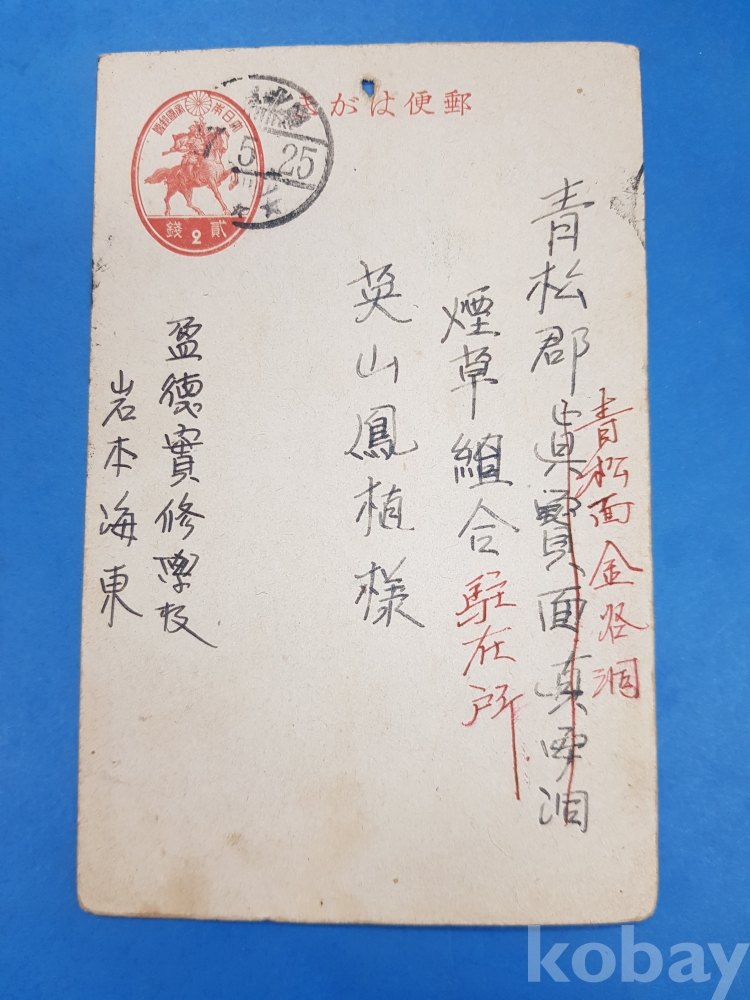 郵便はがき
大日本帝國郵便
貳2錢
7 5 25
青松郡眞寶面真寶洞
青松面金谷洞
煙草組合駐在所
英山鳳植様
盈德實修學校
岩本海東
kobay